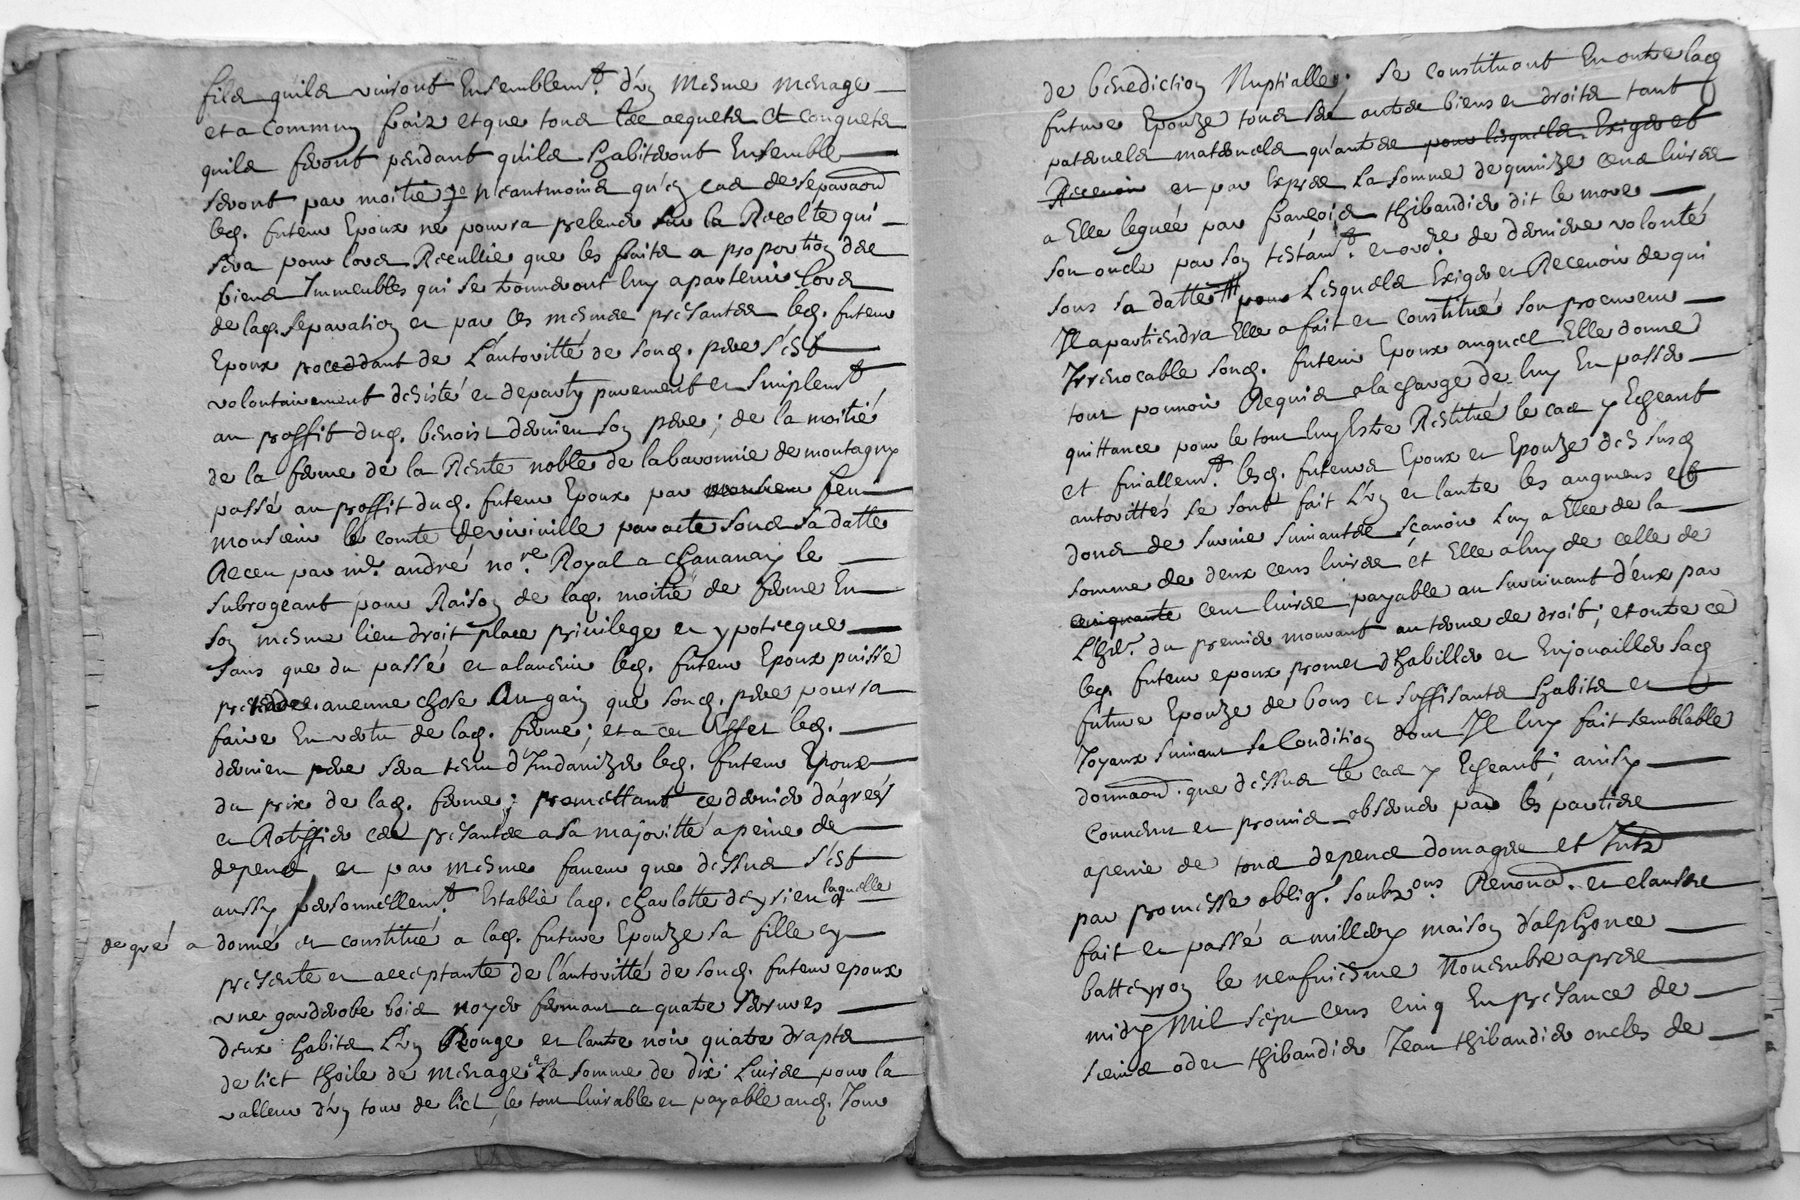 fils quils viuront Ensemblemt. d'vn mesme menage
et a Commun fraiz et que tous les acquets et conquets
quils feront pendant quils habiteront Ensemble
seront par moitie neantmoins qu'en cas de separaon
led. futeur Epoux ne pourra pretendre sur la Recolte qui
sera pour lors Recullie que les fruits a proportion des
biens Immeubles qui se trouueront luy apartenir lors
de lad. separation et par ces mesmes presantes led. futeur
Epoux proceddant de L'autoritté de sond. pere s'est
volontairement desisté et departy purement et simplemt.
au proffit dud. benoist dernieu son pere; de la moitié
de la ferme de la Rente noble de la baronnie de montagny
passé au proffit dud. futeur Epoux par feu
monsieur le comte de viriuille par acte sous sa datte
Receu par me. andré nore. Royal a chauanay le
subrogeant pour Raison de lad. moitié de ferme En
son mesme lieu droit place priuilege et ypotecque
sans que du passé et a laduenir led. futeur Epoux puisse
pretendre aucune chose Au gain que sond. pere pourra
faire En vertu de lad. ferme; et a cet Effet led.
dernieu pere sera tenu d'Indamnizer led. futeur Epoux
du prix de lad. ferme; promettant ce dernier d'agréer
et Ratiffier ces presantes a sa majoritté a peine de
depens, et par mesme faueur que dessus s'est
aussy personnellemt. Establie lad. charlotte deysieu laquelle
de gré a donné et constitué a lad. future Epouze sa fille cy
presente et acceptante de l'autoritté de sond. futeur epoux
vne garderobe bois noyer fermant a quatre serrures
deux habits L'vn Rouge et lautre noir quatre drapts
de lict thoile de menage & La somme de dix Liures pour la
valleur d'vn tour de lict, le tout liurable et payable aud. Jour
de benediction Nuptialle; se constituant En outre lad
future Epouze tous ses autres biens et droits tant
paternels maternels qu'autres pour lesquels Exiger et
Receuoir et par Expres La somme de quinze cens liures
a Elle leguée par françois thibaudier dit le more
son oncle par son testamt. et ordre de derniere volonté
sous sa datte pour Lesquels Exiger et Receuoir de qui
Il apartiendra Elle a fait et constitué son procureur
Irreuocable sond. futeur Epoux auquel Elle donne
tout pouuoir Requis a la charge de luy En passer
quittance pour le tout luy Estre Restitué le cas y Echeant
et finallemt. lesd. futeurs Epoux et Epouze des susd
autorittés se sont fait L'vn et lautre les augmens et
dons de suruie suiuantes sçauoir Luy a Elle de la
somme de deux cens liures et Elle a luy de celle de
cinquante cent liures payable au suruiuant d'eux par
L'her. du premier mourant au terme de droit; et outre ce
led. futeur epoux promet d'habiller et Enjouailler sad
future Epouze de bons et suffisants habits et
Joyaux suiuant sa Condition dont Il luy fait semblable
donnaon. que dessus le cas y Echeant; ainsy
Conuenu et promis obseruer par les parties
a peine de tous depens domages et Intz
par promesse oblig. soubzons. Renonaon. et clauses
fait et passé a millery maison d'alphonce
batteyron le neufuiesme Nouembre apres
midy Mil sept cens cinq En presance de
sieurs odet thibaudier Jean thibaudier oncles de